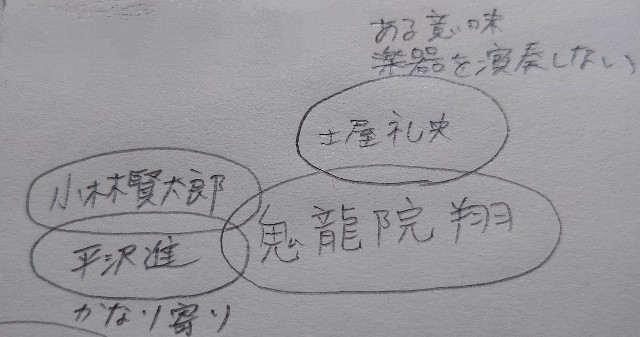 ある意味
楽器を演奏しない
土屋礼央
小林賢太郎
鬼龍院翔
平沢進
かなり寄り